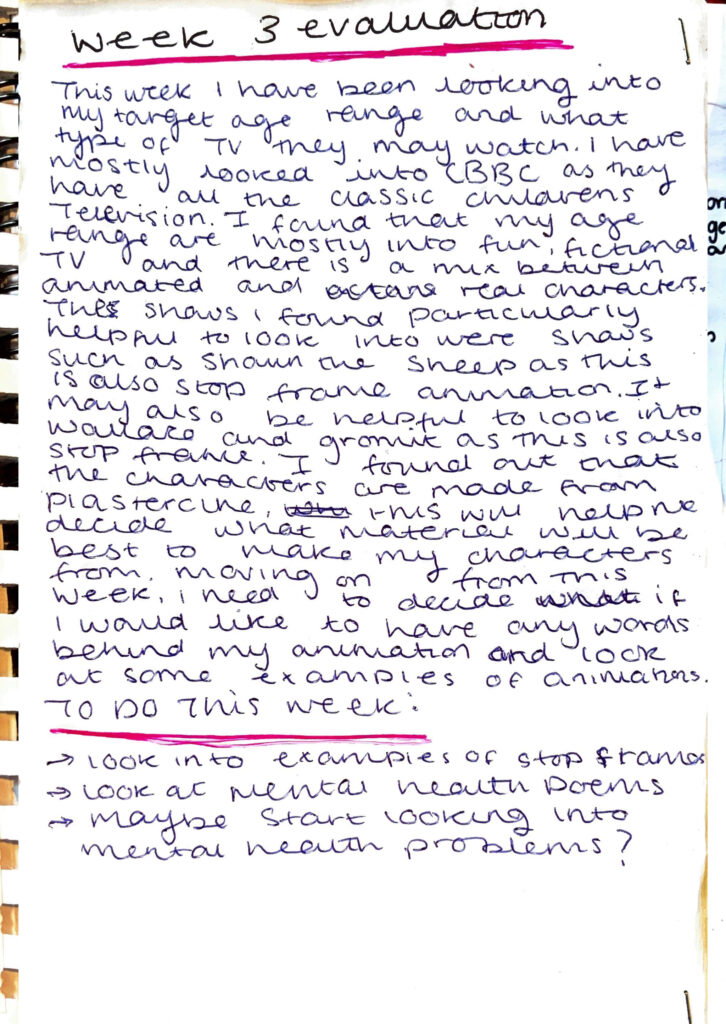 week 3 evaluation
This week I have been looking into
my target age range and what
type of TV they may watch. I have
mostly looked into CBBC as they
have all the classic childrens
Television. I found that my age
range are mostly into fun, fictional
TV and there is a mix between
animated and actors real characters.
The shows I found particularly
helpful to look into were shows
such as Shaun the Sheep as this
is also stop frame animation. It
may also be helpful to look into
Wallace and gromit as this is also
stop frame. I found out that
the characters are made from
plastercine, this will help me
decide what material will be
best to make my characters
from. moving on from this
week, I need to decide what if
I would like to have any words
behind my animation and look
at some examples of animators.
TO DO This week:
→ look into examples of stop frames
→ look at mental health poems
→ maybe start looking into
mental health problems?
on
ge